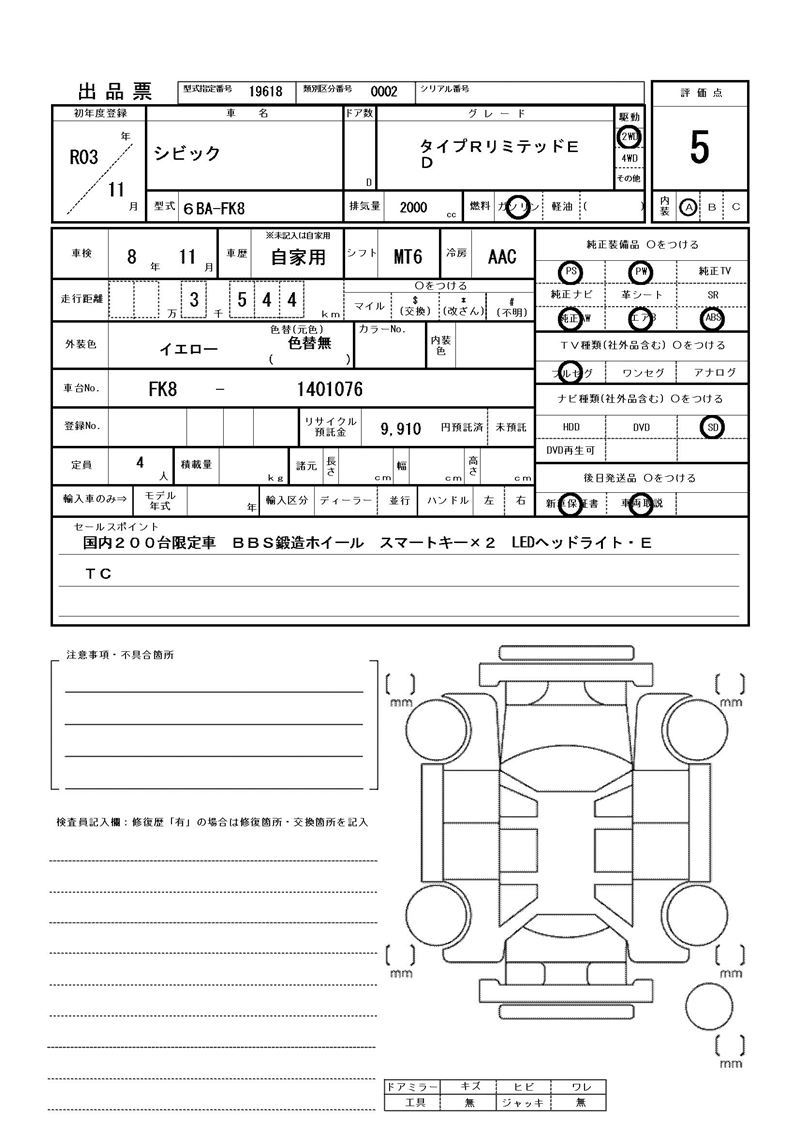 出品票 型式指定番号 19618 類別区分番号 0002 シリアル番号
評価点
5
内装 A B C
初年度登録 車名 ドア数 グレード 駆動
R03 年 11 月
シビック
D
タイプRリミテッドE
D
2WD
4WD
その他
型式 6BA-FK8 排気量 2000 cc 燃料 ガソリン 軽油 ( )
車検 8 年 11 月 車歴 ※未記入は自家用 自家用 シフト MT6 冷房 AAC
走行距離 万 3 千 5 4 4 km
○をつける
マイル $(交換) *(改ざん) #(不明)
外装色 イエロー 色替(元色) 色替無 ( ) カラーNo. 内装色
車台No. FK8 - 1401076
登録No. リサイクル預託金 9,910 円預託済 未預託
定員 4 人 積載量 kg 諸元 長さ cm 幅 cm 高さ cm
輸入車のみ⇒ モデル年式 年 輸入区分 ディーラー 並行 ハンドル 左 右
純正装備品 ○をつける
PS PW 純正TV
純正ナビ 革シート SR
純正AW エアB ABS
TV種類(社外品含む) ○をつける
フルセグ ワンセグ アナログ
ナビ種類(社外品含む) ○をつける
HDD DVD SD
DVD再生可
後日発送品 ○をつける
新車保証書 車両取説
セールスポイント
国内200台限定車 BBS鍛造ホイール スマートキー×2 LEDヘッドライト・E
TC
注意事項・不具合箇所
検査員記入欄:修復歴「有」の場合は修復箇所・交換箇所を記入
[ ] mm [ ] mm
[ ] mm [ ] mm
[ ] mm
ドアミラー キズ ヒビ ワレ
工具 無 ジャッキ 無